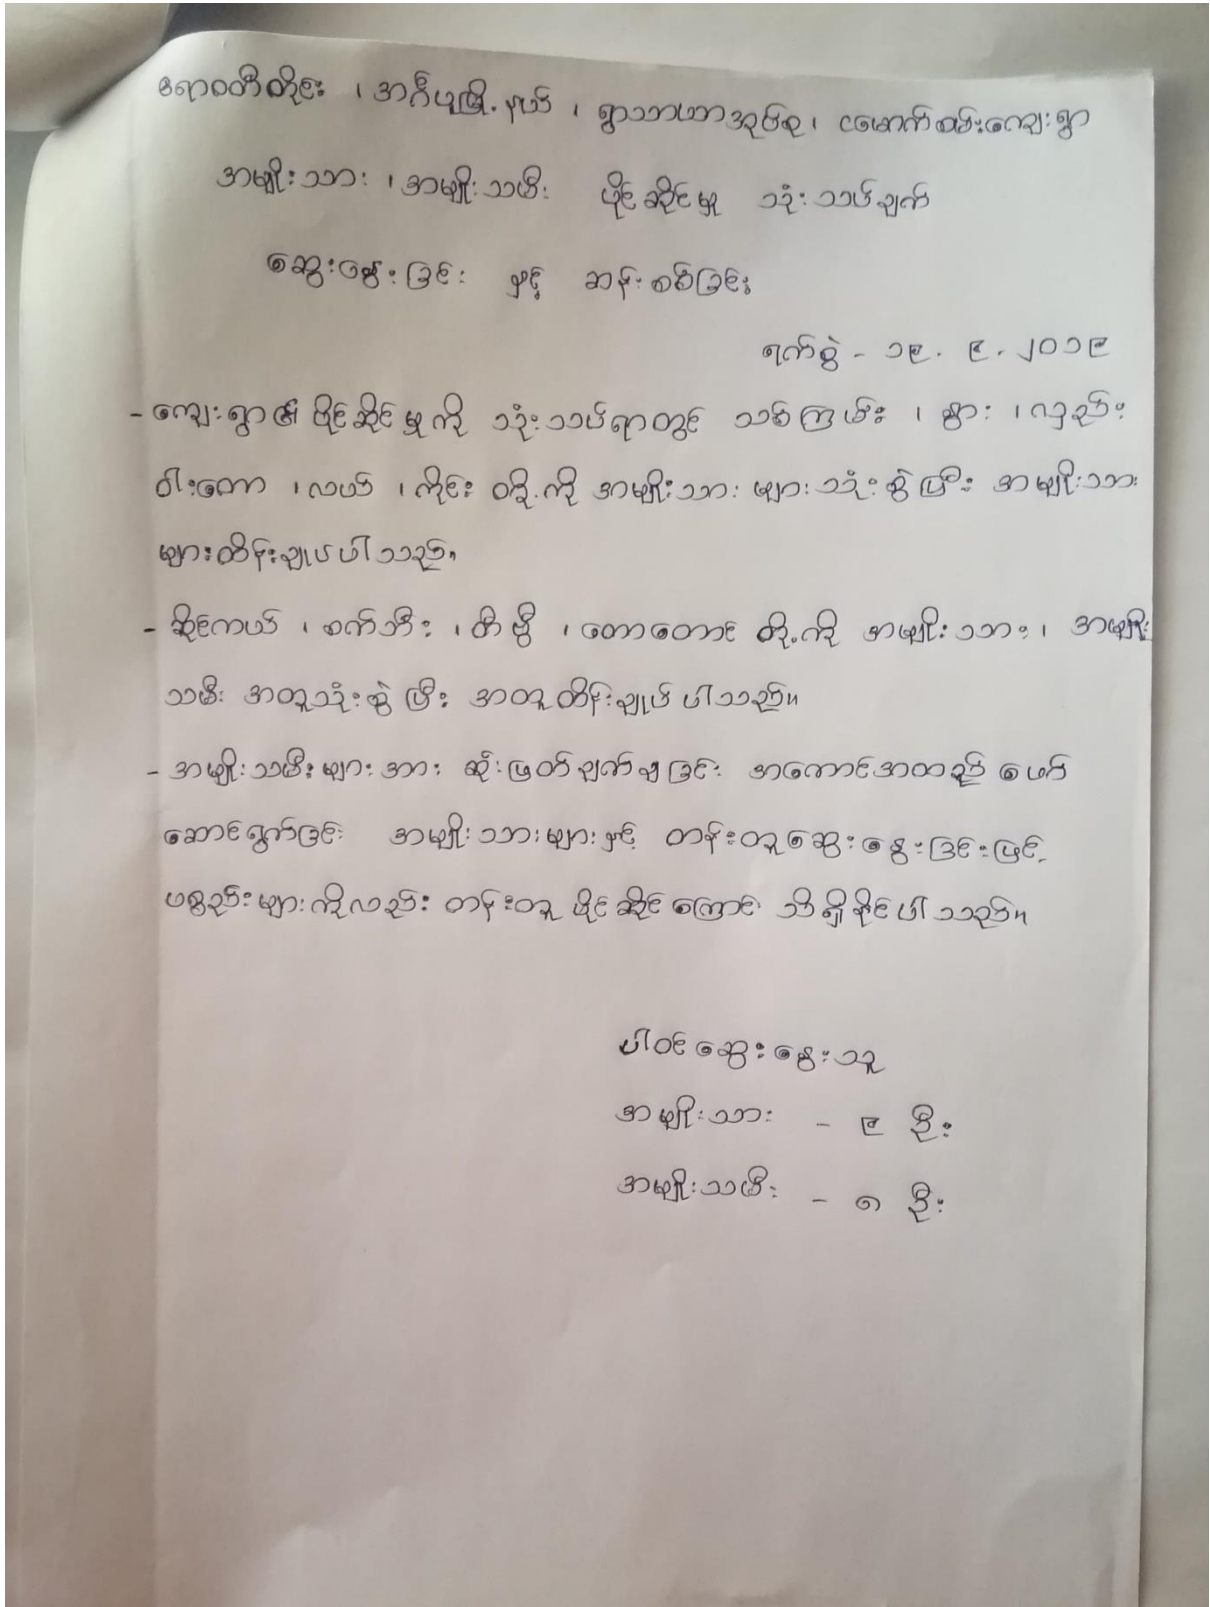 ဧရာဝတီတိုင်း ၊ အင်္ဂပူမြို့နယ် ၊ ရွာသာယာအုပ်စု ၊ ငမောက်စမ်းကျေးရွာ
အမျိုးသား ၊ အမျိုးသမီး ပိုင်ဆိုင်မှု သုံးသပ်ချက်
ဆွေးနွေးခြင်း နှင့် ဆန်းစစ်ခြင်း
ရက်စွဲ - ၁၉. ၉. ၂၀၁၉
- ကျေးရွာ၏ ပိုင်ဆိုင်မှုကို သုံးသပ်ရာတွင် သစ်ကြမ်း ၊ နွား ၊ လှည်း
ဝါးတော ၊ လယ် ၊ ကိုင်း တို့ကို အမျိုးသား များသုံးစွဲပြီး အမျိုးသား
များထိန်းချုပ်ပါသည်။
- ဆိုင်ကယ် ၊ စက်ဘီး ၊ တီဗွီ ၊ တောတောင် တို့ကို အမျိုးသား ၊ အမျိုး
သမီး အတူသုံးစွဲပြီး အတူထိန်းချုပ်ပါသည်။
- အမျိုးသမီးများအား ဆုံးဖြတ်ချက်ချခြင်း အကောင်အထည်ဖော်
ဆောင်ရွက်ခြင်း အမျိုးသားများနှင့် တန်းတူဆွေးနွေးခြင်းဖြင့်
ပစ္စည်းများကိုလည်း တန်းတူ ပိုင်ဆိုင်ကြောင်း သိရှိနိုင်ပါသည်။
ပါဝင်ဆွေးနွေးသူ
အမျိုးသား - ၉ ဦး
အမျိုးသမီး - ၈ ဦး